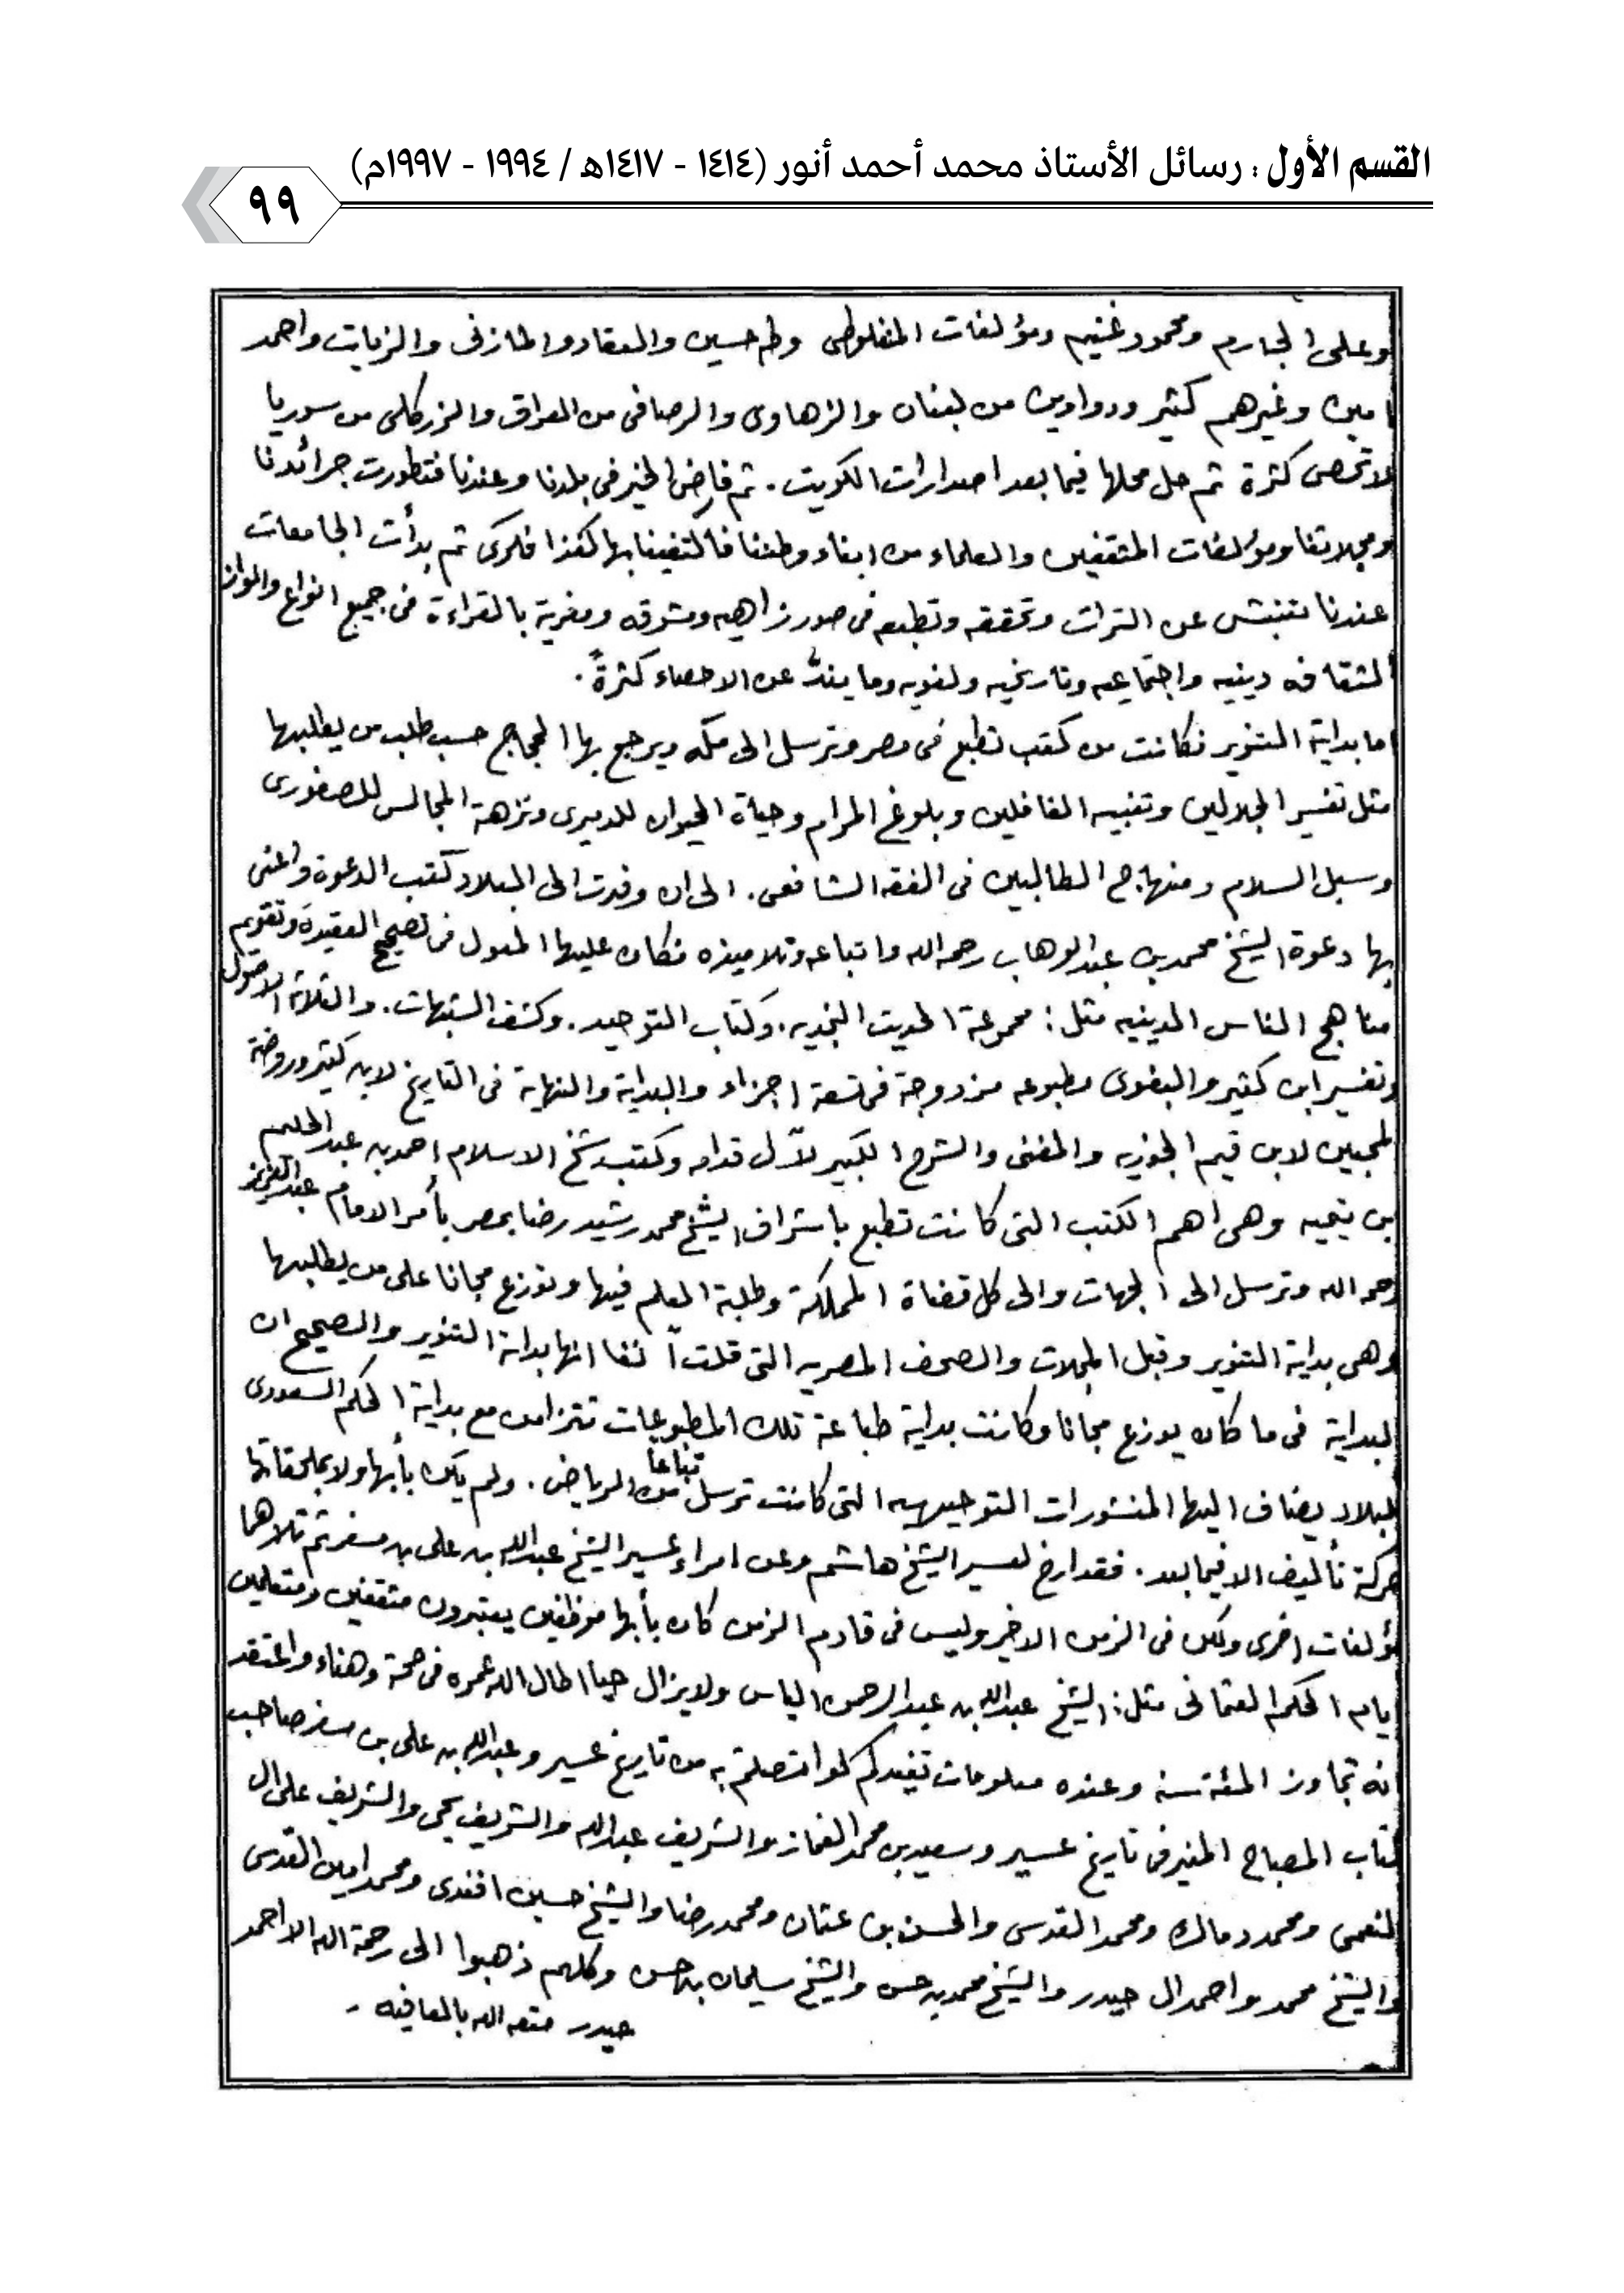 القسم الأول : رسائل الأستاذ محمد أحمد أنور (١٤١٤ - ١٤١٧هـ / ١٩٩٤ - ١٩٩٧م)
٩٩
وعلى الجارم ومحمود غنيم ومؤلفات المنفلوطى وطه حسين والعقاد والمازنى والزيات واحمد
امين وغيرهم كثير ودواوين من لبنان والزهاوى والرصافى من العراق والزركلى من سوريا
لا تحصى كثرة ثم حل محلها فيما بعد اصدارات الكويت . ثم فاض الخير فى بلدنا وعندنا فتطورت جرائدنا
ومجلاتنا ومؤلفات المثقفين والعلماء من ابناء وطننا فاكتفينا بها كغذا فكرى ثم بدأت الجامعات
عندنا تنبش عن التراث وتحققه وتطبعه فى صور زاهيه ومشرقه ومغرية بالقراءة فى جميع انواع والوان
الثقافه دينيه واجتماعيه وتاريخيه ولغويه وما يندُّ عن الاحصاء كثرةً .
اما بداية التنوير فكانت من كتب تطبع فى مصر وترسل الى مكه ويرجع بها الحجاج حسب طلب من يطلبها
مثل تفسير الجلالين وتنبيه الغافلين وبلوغ المرام وحياة الحيوان للدميرى ونزهة المجالس للصفورى
وسبل السلام ومنهاج الطالبين فى الفقه الشافعى . الى ان وفدت الى البلاد كتب الدعوة واعنى
بها دعوة الشيخ محمد بن عبدالوهاب رحمه الله واتباعه وتلاميذه فكان عليها المعول فى تصحيح العقيدة وتقويم
مناهج الناس الدينيه مثل : مجموعة الحديث النجديه . وكتاب التوحيد . وكشف الشبهات . والثلاثة الاصول
وتفسير ابن كثير والبغوى مطبوعه مزدوجة فى تسعة اجزاء والبداية والنهاية فى التاريخ لابن كثير وروضة
المحبين لابن قيم الجوزيه والمغنى والشرح الكبير لآل قدامه وكتب شيخ الاسلام احمد بن عبدالحليم
بن تيميه وهى اهم الكتب التى كانت تطبع باشراف الشيخ محمد رشيد رضا بمصر بأمر الامام عبدالعزيز
رحمه الله وترسل الى الجهات والى كل قضاة المملكة وطلبة العلم فيها وتوزع مجانا على من يطلبها
وهى بداية التنوير وقبل المجلات والصحف المصريه التى قلت آنفا انها بداية التنوير والصحيح ان
البداية فى ما كان يوزع مجانا وكانت بداية طباعة تلك المطبوعات تتزامن مع بداية الحكم السعودى
للبلاد يضاف اليها المنشورات التوجيهيه التى كانت ترسل تباعاً من الرياض . ولم يكن بأبها ولا بملحقاتها
حركة تأليف الا فيما بعد . فقد ارخ لعسير الشيخ هاشم وعن امراء عسير الشيخ عبدالله بن على بن مسفر ثم تلاهما
مؤلفات اخرى ولكن فى الزمن الاخير وليس فى قادم الزمن كان بأبها موظفين يعتبرون مثقفين ومتعلمين
ايام الحكم العثمانى مثل : الشيخ عبدالله بن عبدالرحمن الياس ولا يزال حيا اطال الله عمره فى صحة وهناء واعتقد
انه تجاوز المئة سنه وعنده معلومات تفيدكم لو اتصلتم به من تاريخ عسير وعبدالله بن على بن مسفر صاحب
كتاب المصباح المنير فى تاريخ عسير وسعيد بن محمد الغماز والشريف عبدالله والشريف يحى والشريف على ال
النعمى ومحمد دمالك ومحمد القدسى والحسن بن عثمان ومحمد رضا والشيخ حسين افندى ومحمد امين القدسى
والشيخ محمد واحمد ال حيدر والشيخ محمد بن حسن والشيخ سليمان بن حسن وكلهم ذهبوا الى رحمة الله الا احمد
حيدر متعه الله بالعافيه -